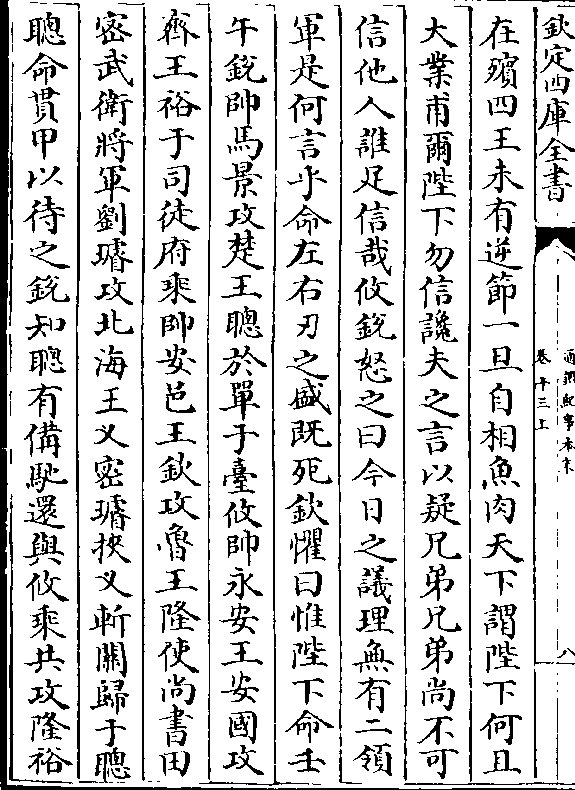 欽定四庫全書
通鑑紀事本末
卷十三上
八
在殯四王未有逆節一旦自相魚肉天下謂陛下何且
大業甫爾陛下勿信讒夫之言以疑兄弟兄弟尚不可
信他人誰足信哉攸銳怒之曰今日之議理無有二領
軍是何言乎命左右刃之盛既死欽懼曰惟陛下命壬
午銳帥馬景攻楚王聰於單于臺攸帥永安王安國攻
齊王裕于司徒府乘帥安邑王欽攻魯王隆使尚書田
密武衛將軍劉璿攻北海王乂密璿挾乂斬關歸于聰
聰命貫甲以待之銳知聰有備馳還與攸乘共攻隆裕